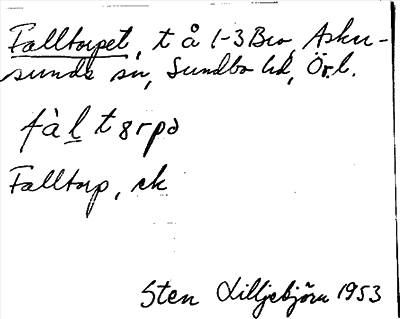 Falltorpet, t å 1-3 Bro, Asker-
sunds sn, Sundbo hd, Ör.l.
fàl t 8rpə
Falltorp, ek
Sten Lilljebjörn 1953